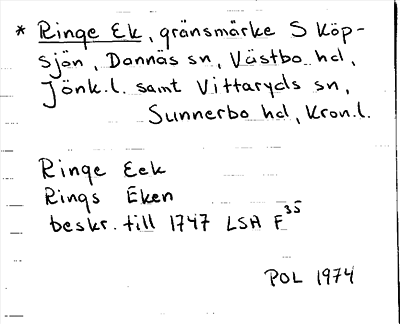 * Ringe Ek, gränsmärke S Köp-
sjön, Dannäs sn, Västbo hd,
Jönk.l. samt Vittaryds sn,
Sunnerbo hd, Kron.l.
Ringe Eek
Rings Eken
beskr. till 1747 LSA F35
POL 1974